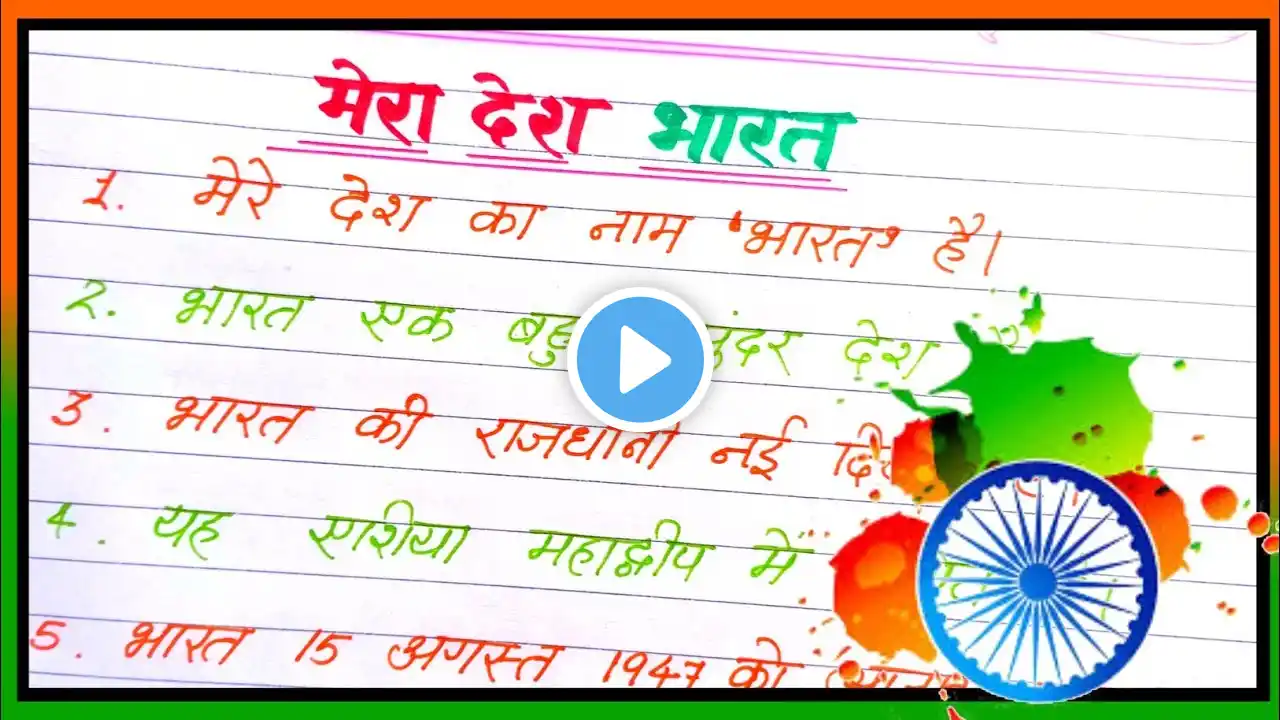 मेरा देश भारत
1. मेरे देश का नाम 'भारत' है।
2. भारत एक देश
3. भारत की राजधानी नई
4. यह एशिया महाद्वीप में
5. भारत 15 अगस्त 1947 को